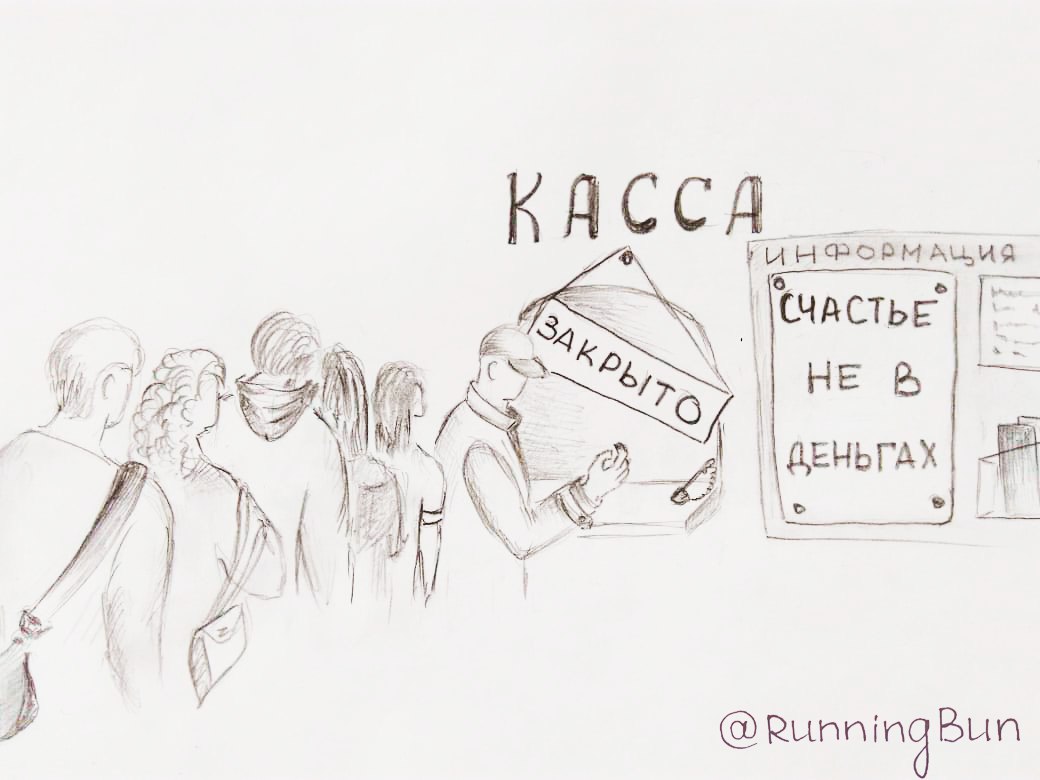 КАССА
ЗАКРЫТО
ИНФОРМАЦИЯ
СЧАСТЬЕ
НЕ В
ДЕНЬГАХ
@RunningBun